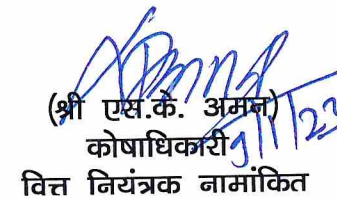 (श्री एस.के. अमन)
कोषाधिकारी
वित्त नियंत्रक नामांकित